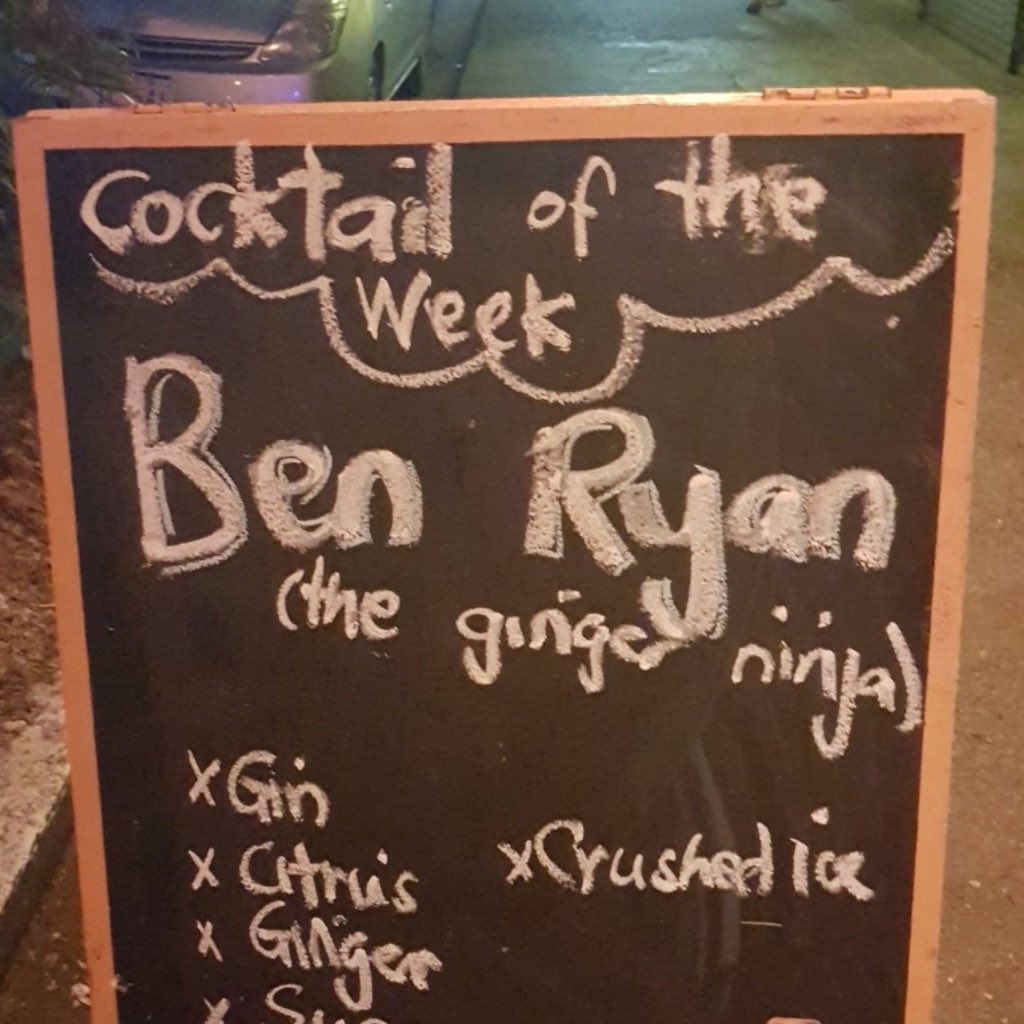 Cocktail of the
Week
Ben Ryan
(the ginger ninja)
x Gin
x Citrus
x Crushed ice
x Ginger
x